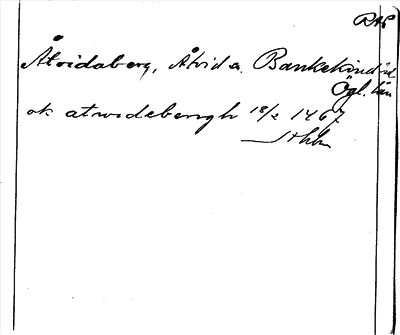 RAP
Åtvidaberg, Åtvid s. Bankekinds hd
Ögl. län
ok atwidebergh 18/2 1467
Sthlm